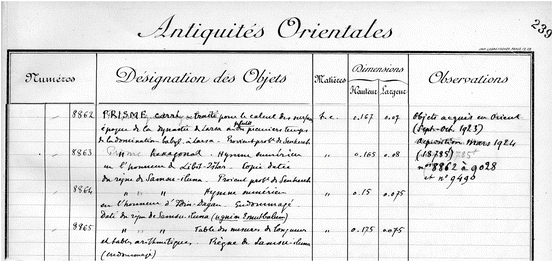 Antiquités Orientales
239
Numéros
Désignation des Objets
Matières
Dimensions
Hauteur Largeur
Observations
8862 PRISME carré = traité pour le calcul des surfaces
époque de la dynastie de Larsa ou premiers temps
de la domination babyl. à Larsa. Provient probt de Senkereh
t.c. 0,167 0,07
Objets acquis en Orient
(Sept-Oct. 1923)
acquisition Mars 1924
8863 hexagonal. Hymne sumérien
en l'honneur de Libit-Ištar. Copie datée
du règne de Samsu-iluna. Provient probt de Senkereh
" 0,165 0,08
(18785)
nos 8862 à 9028
et n° 9490
8864 " " " Hymne sumérien
en l'honneur d'Išme-Dagan. Endommagé
Daté du règne de Samsu-iluna
" 0.15 0,075
8865 " " " Table des mesures de longueur
et tables arithmétiques. Règne de Samsu-iluna
(endommagé)
" 0.175 0,075